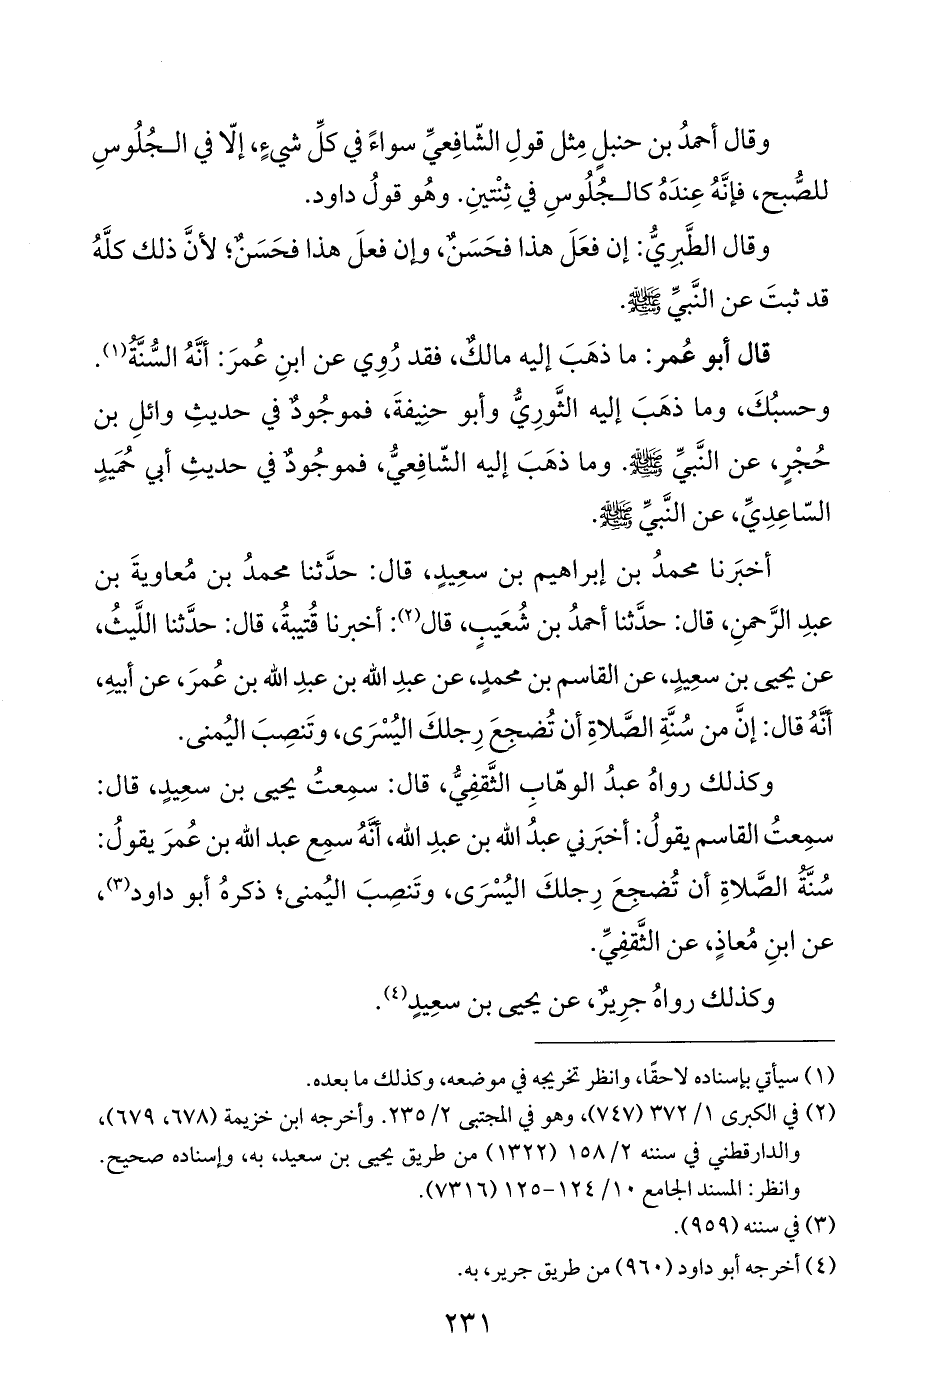 وقال أحمدُ بن حنبلٍ مِثل قولِ الشّافِعيِّ سواءً في كلِّ شيءٍ، إلّا في الـجُلُوسِ
للصُّبحِ، فإنَّهُ عِندَهُ كالـجُلُوسِ في ثِنْتينِ. وهُو قولُ داود.
وقال الطَّبرِيُّ: إن فعَلَ هذا فحَسَنٌ، وإن فعلَ هذا فحَسَنٌ؛ لأنَّ ذلك كلَّهُ
قد ثبتَ عن النَّبيِّ ﷺ.
قال أبو عُمر: ما ذهَبَ إليه مالكٌ، فقد رُوِي عن ابنِ عُمرَ: أنَّهُ السُّنَّةُ(١).
وحسبُكَ، وما ذهَبَ إليه الثَّورِيُّ وأبو حنِيفةَ، فموجُودٌ في حديثِ وائلِ بن
حُجْرٍ، عن النَّبيِّ ﷺ. وما ذهَبَ إليه الشّافعيُّ، فموجُودٌ في حديثِ أبي حُميدٍ
السّاعِدِيِّ، عن النَّبيِّ ﷺ.
أخبَرنا محمدُ بن إبراهيم بن سعِيدٍ، قال: حدَّثنا محمدُ بن مُعاويةَ بن
عبدِ الرَّحمنِ، قال: حدَّثنا أحمدُ بن شُعَيبٍ، قال(٢): أخبرنا قُتيبةُ، قال: حدَّثنا اللَّيثُ،
عن يحيى بن سعِيدٍ، عن القاسم بن محمدٍ، عن عبدِ الله بن عبدِ الله بن عُمرَ، عن أبيهِ،
أنَّهُ قال: إنَّ من سُنَّةِ الصَّلاةِ أن تُضجِعَ رِجلكَ اليُسْرَى، وتَنصِبَ اليُمنى.
وكذلك رواهُ عبدُ الوهّابِ الثَّقفِيُّ، قال: سمِعتُ يحيى بن سعِيدٍ، قال:
سمِعتُ القاسم يقولُ: أخبَرني عبدُ الله بن عبدِ الله، أنَّهُ سمِع عبد الله بن عُمرَ يقولُ:
سُنَّةُ الصَّلاةِ أن تُضجِعَ رِجلكَ اليُسْرَى، وتَنصِبَ اليُمنى؛ ذكرهُ أبو داود(٣)،
عن ابنِ مُعاذٍ، عن الثَّقفِيِّ.
وكذلك رواهُ جرِيرٌ، عن يحيى بن سعِيدٍ(٤).
(١) سيأتي بإسناده لاحقًا، وانظر تخريجه في موضعه، وكذلك ما بعده.
(٢) في الكبرى ١/ ٣٧٢ (٧٤٧)، وهو في المجتبى ٢/ ٢٣٥. وأخرجه ابن خزيمة (٦٧٨، ٦٧٩)،
والدارقطني في سننه ٢/ ١٥٨ (١٣٢٢) من طريق يحيى بن سعيد، به، وإسناده صحيح.
وانظر: المسند الجامع ١٠/ ١٢٤-١٢٥ (٧٣١٦).
(٣) في سننه (٩٥٩).
(٤) أخرجه أبو داود (٩٦٠) من طريق جرير، به.
٢٣١